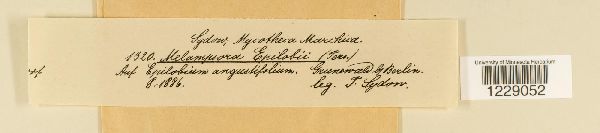 Sydow, Mycotheca Marchica.
1320. Melampsora Epilobii (Pers.)
Auf Epilobium angustifolium. Grunewald b/Berlin.
8.1886. leg. P. Sydow.
University of Minnesota Herbarium
1229052